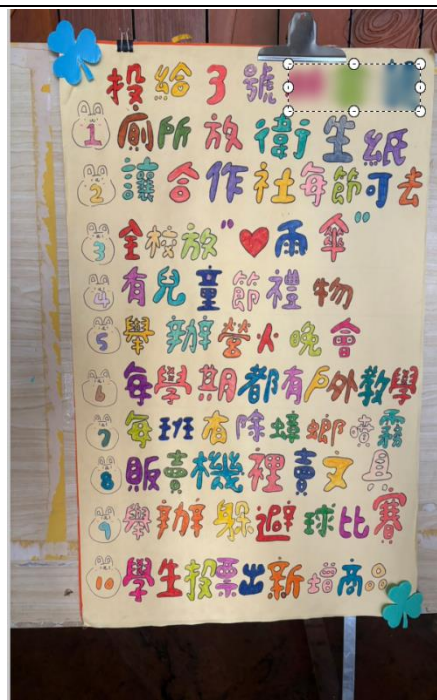 投給3號
1 廁所放衛生紙
2 讓合作社每節可去
3 全校放"❤雨傘"
4 有兒童節禮物
5 舉辦營火晚會
6 每學期都有戶外教學
7 每班有除蟑螂噴霧
8 販賣機裡賣文具
9 舉辦躲避球比賽
10 學生投票出新增商品